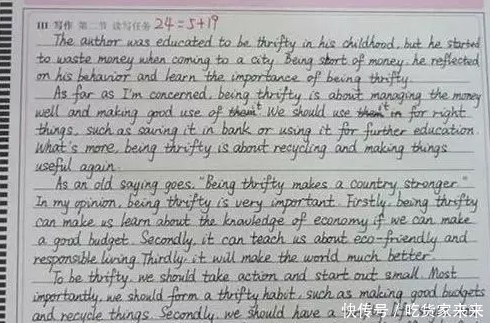 III 写作 第二节 读写任务 24=5+19
The author was educated to be thrifty in his childhood, but he started
to waste money when coming to a city. Being short of money, he reflected
on his behavior and learn the importance of being thrifty.
As far as I'm concerned, being thrifty is about managing the money
well and making good use of them it. We should use them it in for right
things, such as saving it in bank or using it for further education.
What's more, being thrifty is about recycling and making things
useful again.
As an old saying goes, "Being thrifty makes a country stronger."
In my opinion, being thrifty is very important. Firstly, being thrifty
can make us learn about the knowledge of economy if we can make
a good budget. Secondly, it can teach us about eco-friendly and
responsible living. Thirdly, it will make the world much better.
To be thrifty, we should take action and start out small. Most
importantly, we should form a thrifty habit, such as making good budgets
and recycle things. Secondly, we should have a
快传号/吃货家来来